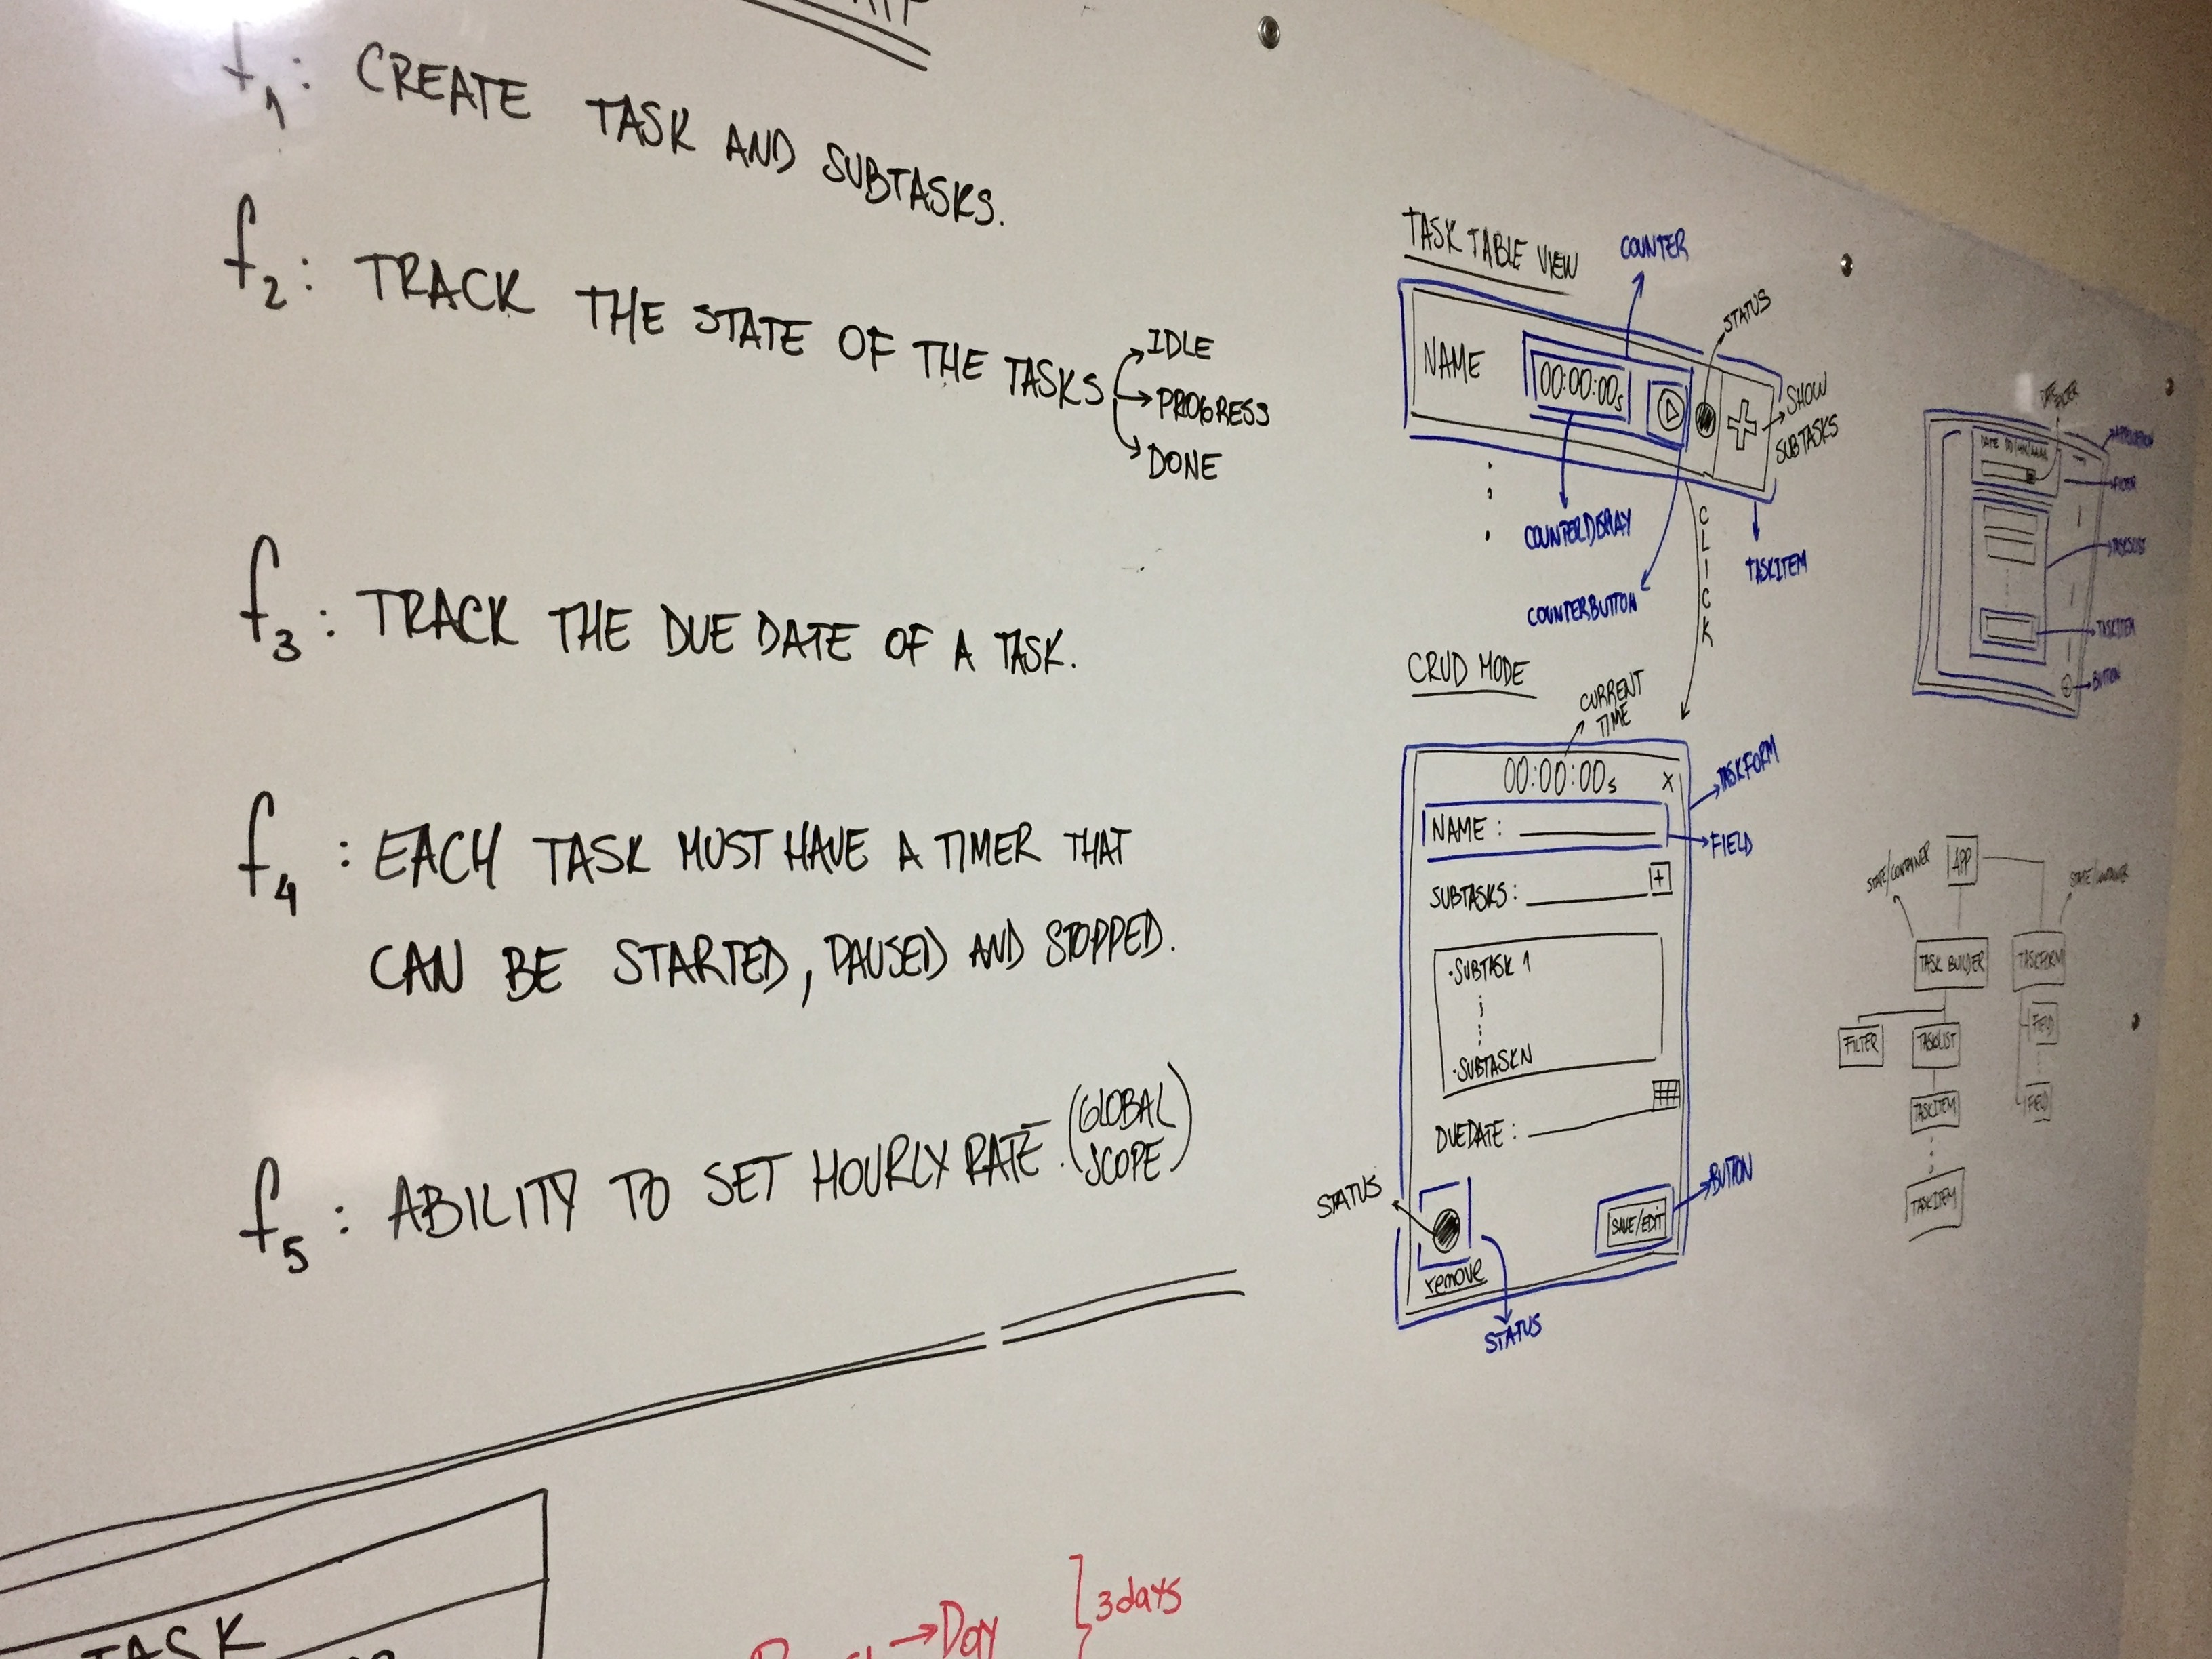 f1: CREATE TASK AND SUBTASKS.
f2: TRACK THE STATE OF THE TASKS
IDLE
PROGRESS
DONE
f3: TRACK THE DUE DATE OF A TASK.
f4: EACH TASK MUST HAVE A TIMER THAT
CAN BE STARTED, PAUSED AND STOPPED.
f5: ABILITY TO SET HOURLY RATE. (GLOBAL
SCOPE)
TASK
→Day
3days
TASK TABLE VIEW
COUNTER
STATUS
NAME
00:00:00s
SHOW
SUBTASKS
COUNTERDISPLAY
COUNTERBUTTON
CLICK
TASKITEM
CRUD MODE
CURRENT
TIME
00:00:00s
X
TASKFORM
NAME:
FIELD
SUBTASKS:
+
·SUBTASK 1
·SUBTASKN
DUEDATE:
STATUS
SAVE/EDIT
BUTTON
remove
STATUS
DATE
FILTER
TASKLIST
TASKITEM
BUTTON
STATE/CONTAINER
APP
STATE/CONTAINER
TASK BUILDER
TASKFORM
FILTER
TASKLIST
FIELD
TASKITEM
FIELD
TASKITEM